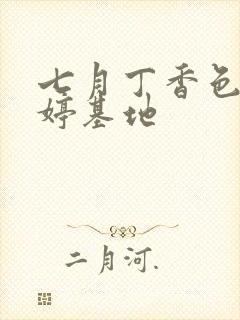 七月丁香色
婷基地
二月河.